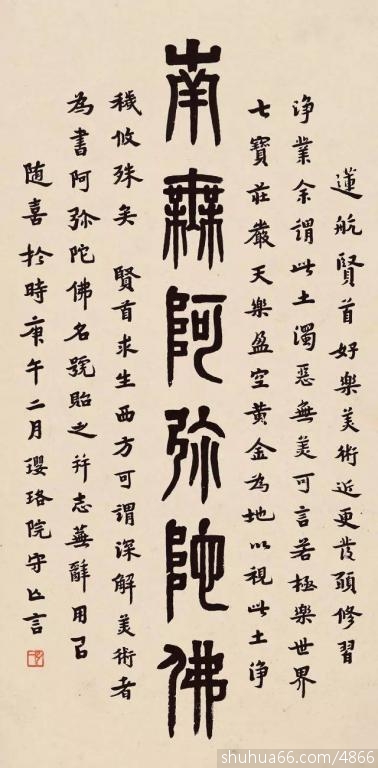 蓮航賢首好樂美術近更發願修習
淨業余謂此土濁惡無美可言若極樂世界
七寶莊嚴天樂盈空黃金為地以視此土淨
南無阿弥陀佛
穢攸殊矣 賢首求生西方可謂深解美術者
為書阿弥陀佛名號貽之并志蕪辭用㠯
随喜於時庚午二月瓔珞院守亡言
shuhua66.com/4866